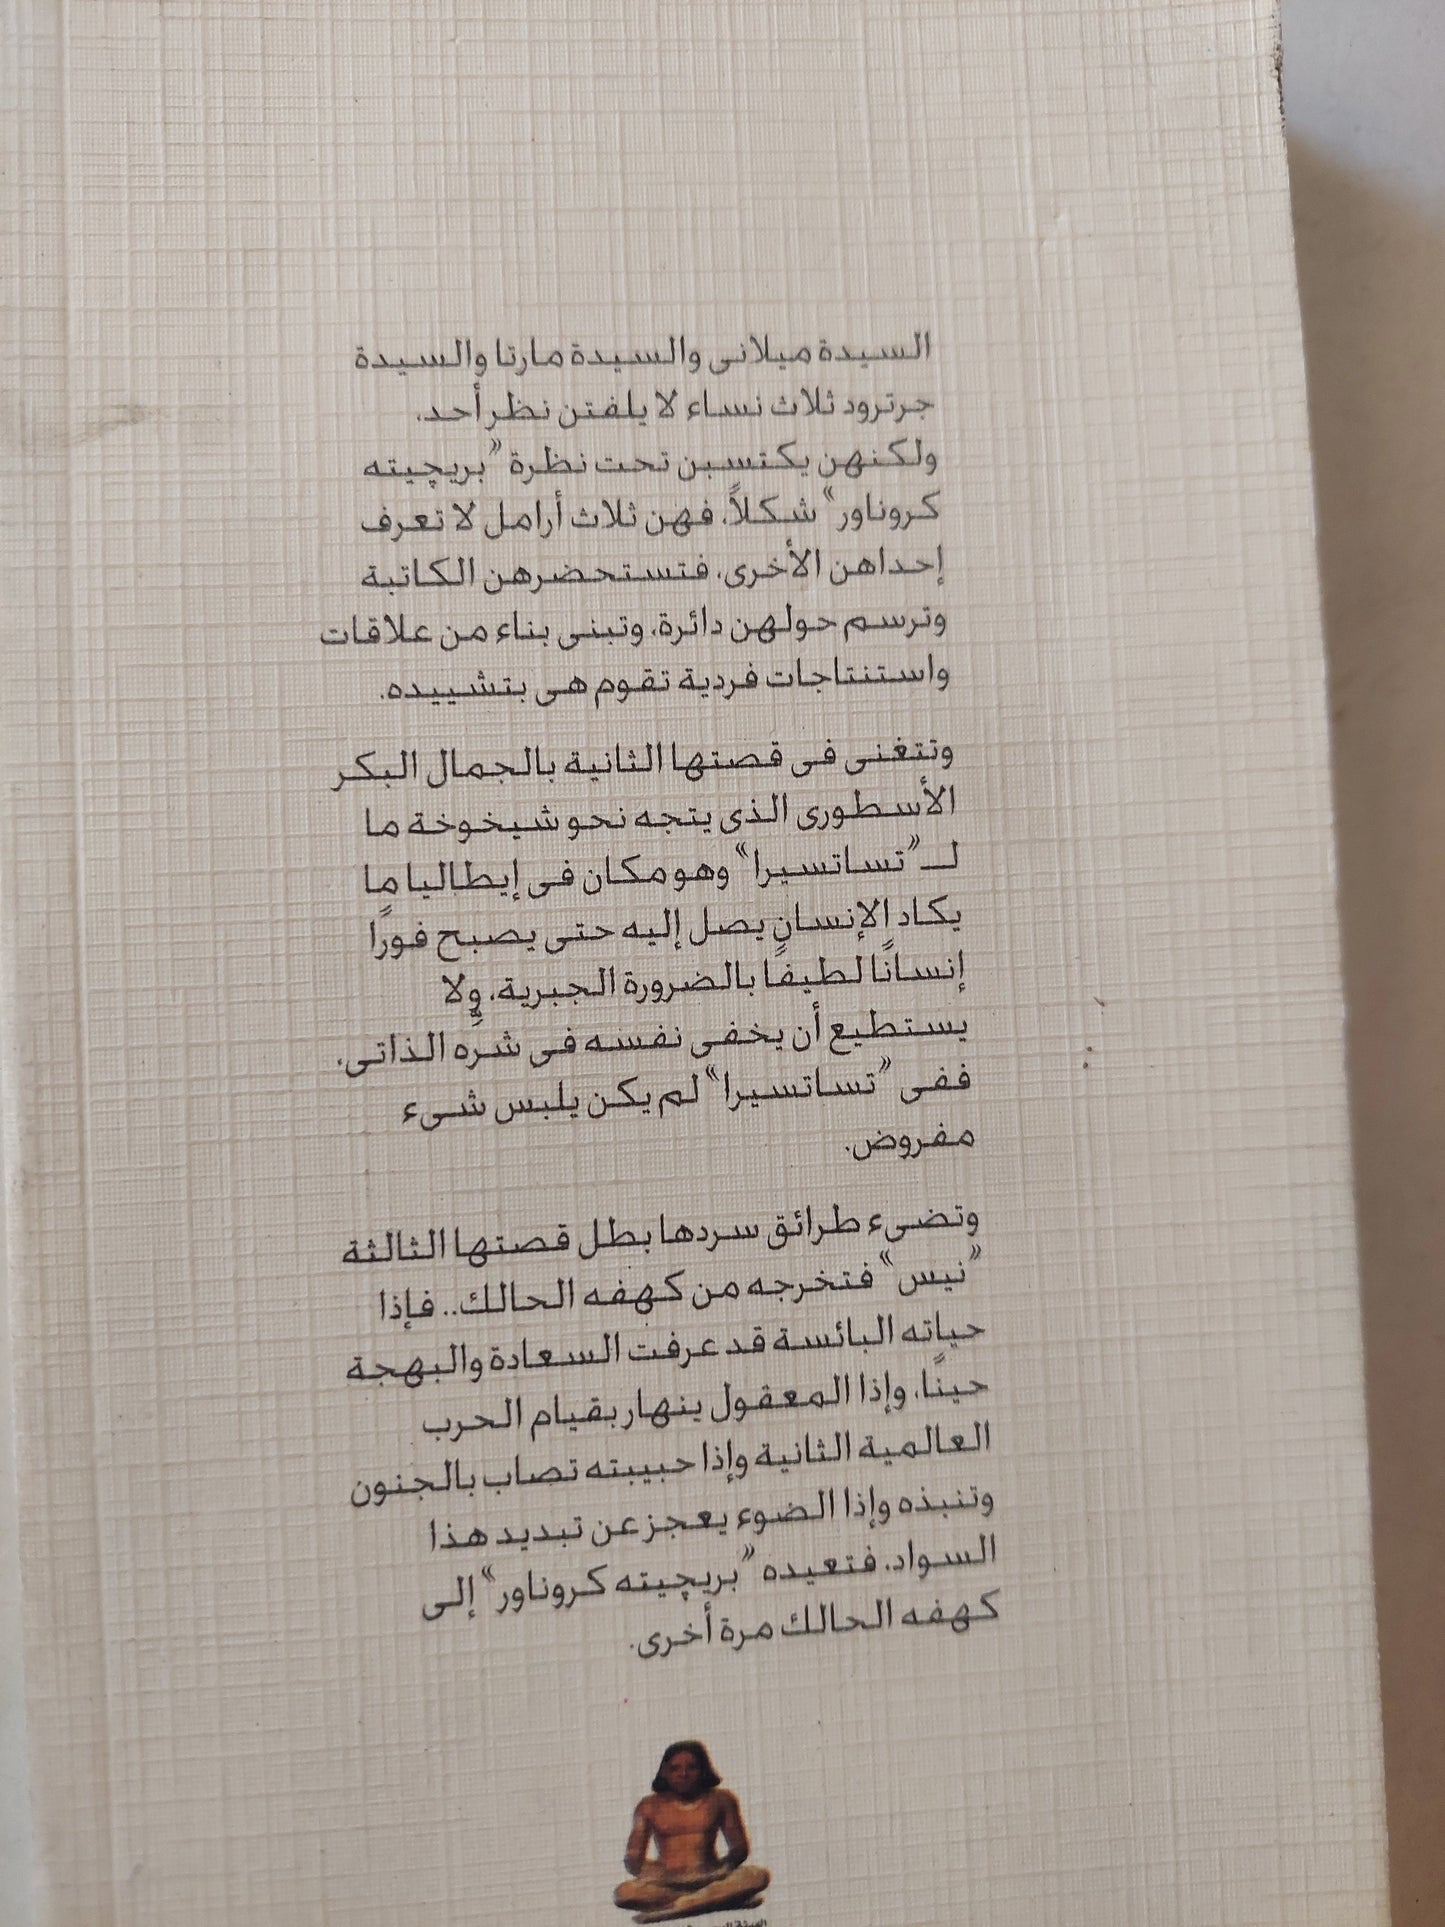 السيدة ميلانى والسيدة مارتا والسيدة
جرترود ثلاث نساء لا يلفتن نظر أحد.
ولكنهن يكتسبن تحت نظرة "بريچيته
كروناور" شكلاً. فهن ثلاث أرامل لا تعرف
إحداهن الأخرى. فتستحضرهن الكاتبة
وترسم حولهن دائرة. وتبنى بناء من علاقات
واستنتاجات فردية تقوم هى بتشييده.
وتتغنى فى قصتها الثانية بالجمال البكر
الأسطورى الذى يتجه نحو شيخوخة ما
لـ "تساتسيرا" وهو مكان فى إيطاليا ما
يكاد الإنسان يصل إليه حتى يصبح فورًا
إنسانًا لطيفًا بالضرورة الجبرية. ولا
يستطيع أن يخفى نفسه فى شرِّه الذاتى.
ففى "تساتسيرا" لم يكن يلبس شىء
مفروض.
وتضىء طرائق سردها بطل قصتها الثالثة
"نيس" فتخرجه من كهفه الحالك.. فإذا
حياته البائسة قد عرفت السعادة والبهجة
حينًا. وإذا المعقول ينهار بقيام الحرب
العالمية الثانية وإذا حبيبته تصاب بالجنون
وتنبذه وإذا الضوء يعجز عن تبديد هذا
السواد. فتعيده "بريچيته كروناور" إلى
كهفه الحالك مرة أخرى.